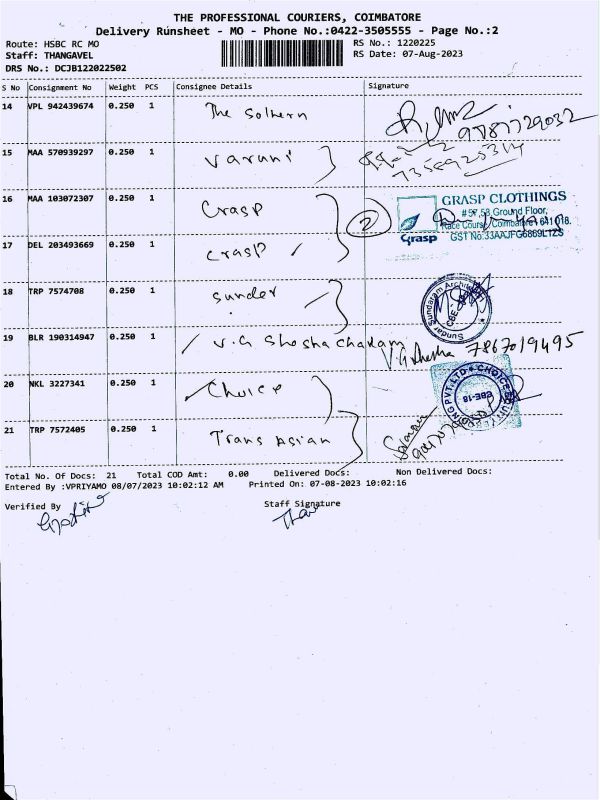 THE PROFESSIONAL COURIERS, COIMBATORE
Delivery Runsheet - MO - Phone No.:0422-3505555 - Page No.:2
Route: HSBC RC MO
RS No.: 1220225
Staff: THANGAVEL
RS Date: 07-Aug-2023
DRS No.: DCJB122022502
S No Consignment No Weight PCS Consignee Details Signature
14 VPL 942439674 0.250 1 The Sothern
9787729032
15 MAA 570939297 0.250 1 Varuni
7358925314
16 MAA 103072307 0.250 1 Crasp
2
GRASP CLOTHINGS
#57,58, Ground Floor,
Race Course, Coimbatore 641 018.
GST No:33AAJFG6869L1ZS
Grasp
17 DEL 203493669 0.250 1 Crasp
18 TRP 7574708 0.250 1 Sunder
Sundar Sundaram Architects
CBE
19 BLR 190314947 0.250 1 V.G Shesha Chadam
V.G Shesha 7867019495
20 NKL 3227341 0.250 1 Choice
PVT.LTD * CHOICE
CBE-18
21 TRP 7572405 0.250 1 Trans Asian
Total No. Of Docs: 21 Total COD Amt: 0.00 Delivered Docs: Non Delivered Docs:
Entered By :VPRIYAMO 08/07/2023 10:02:12 AM Printed On: 07-08-2023 10:02:16
Verified By Staff Signature